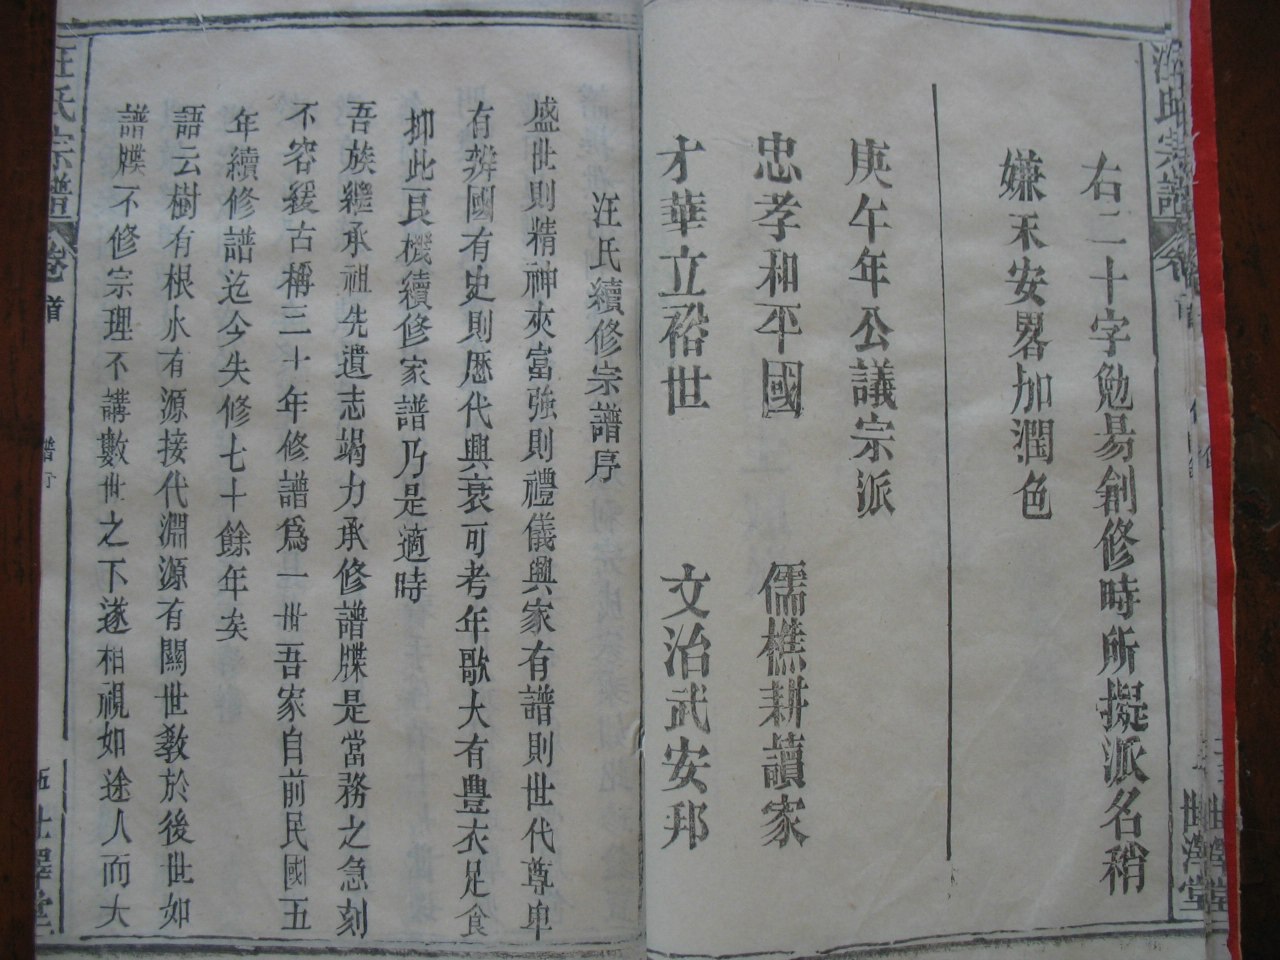 右二十字勉昜創修時所擬派名稍
嫌未安畧加潤色
庚午年公議宗派
忠孝和平國 儒樵耕讀家
才華立裕世 文治武安邦
世澤堂
汪氏續修宗譜序
盛世則精神夾富強則禮儀興家有譜則世代尊卑
有辨國有史則歷代興衰可考年歌大有豐衣足食
抑此良機續修家譜乃是適時
吾族繼承祖先遺志竭力承修譜牒是當務之急刻
不容緩古稱三十年修譜爲一世吾家自前民國五
年續修譜迄今失修七十餘年矣
語云樹有根水有源接代淵源有關世教於後世如
譜牒不修宗理不講數世之下遂相視如途人而大
汪氏宗譜 卷首 譜序 世澤堂